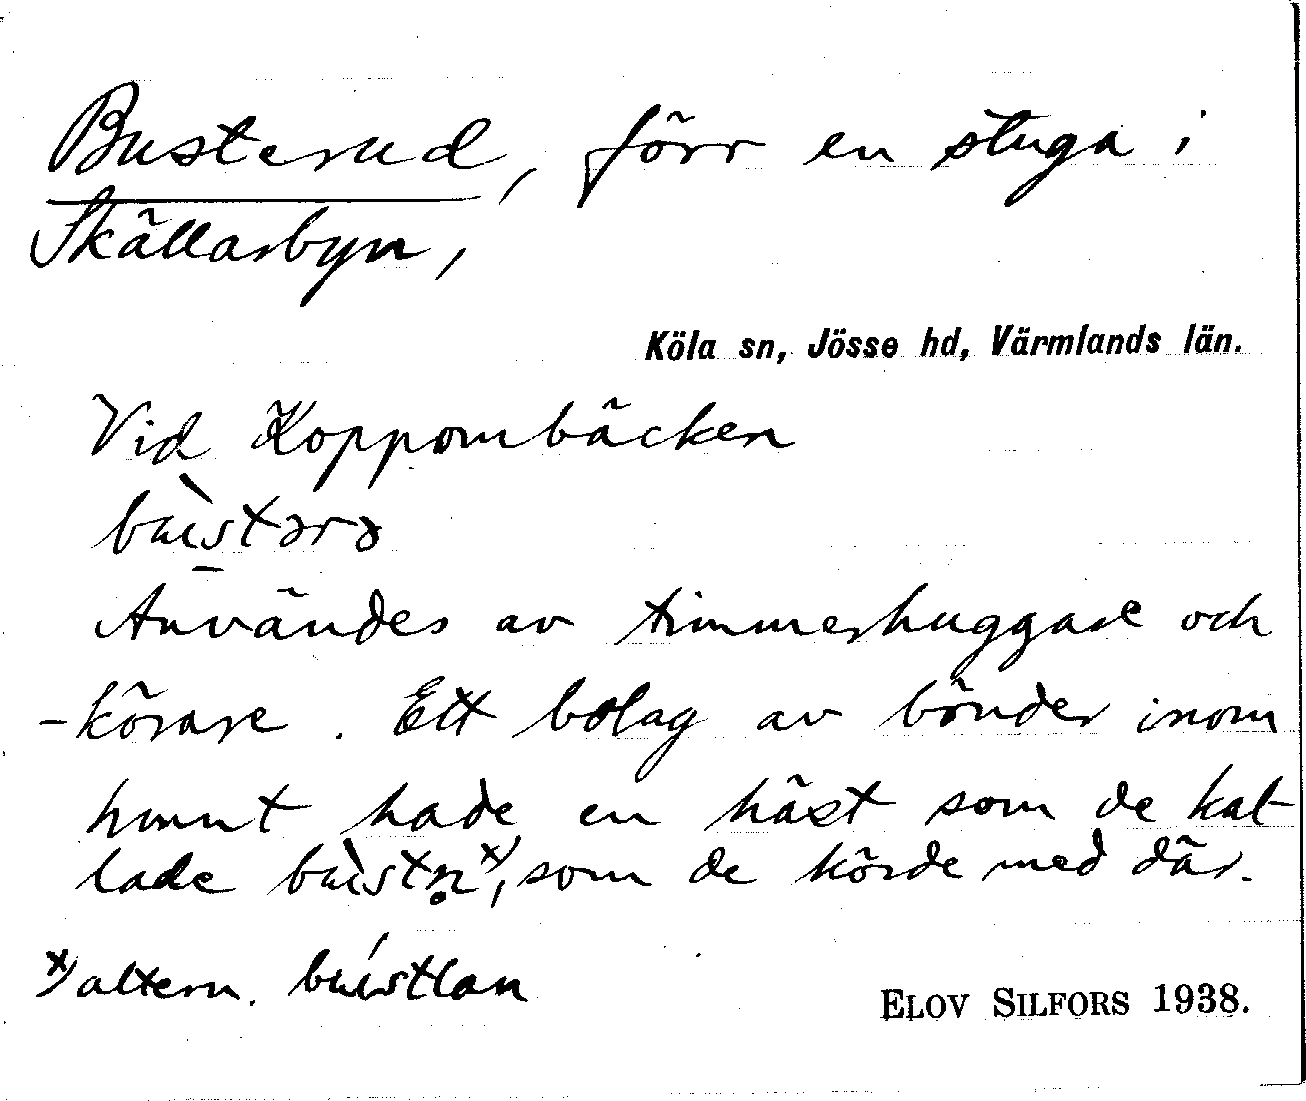 Busterud, förr en stuga i
Skällarbyn,
Köla sn, Jösse hd, Värmlands län.
Vid Koppombäcken
bùstərə
Användes av timmerhuggare och
-körare. Ett bolag av bönder inom
hmnt hade en häst som de kal-
lade bùstn̥ x), som de körde med där.
x) altern. bústlan
ELOV SILFORS 1938.